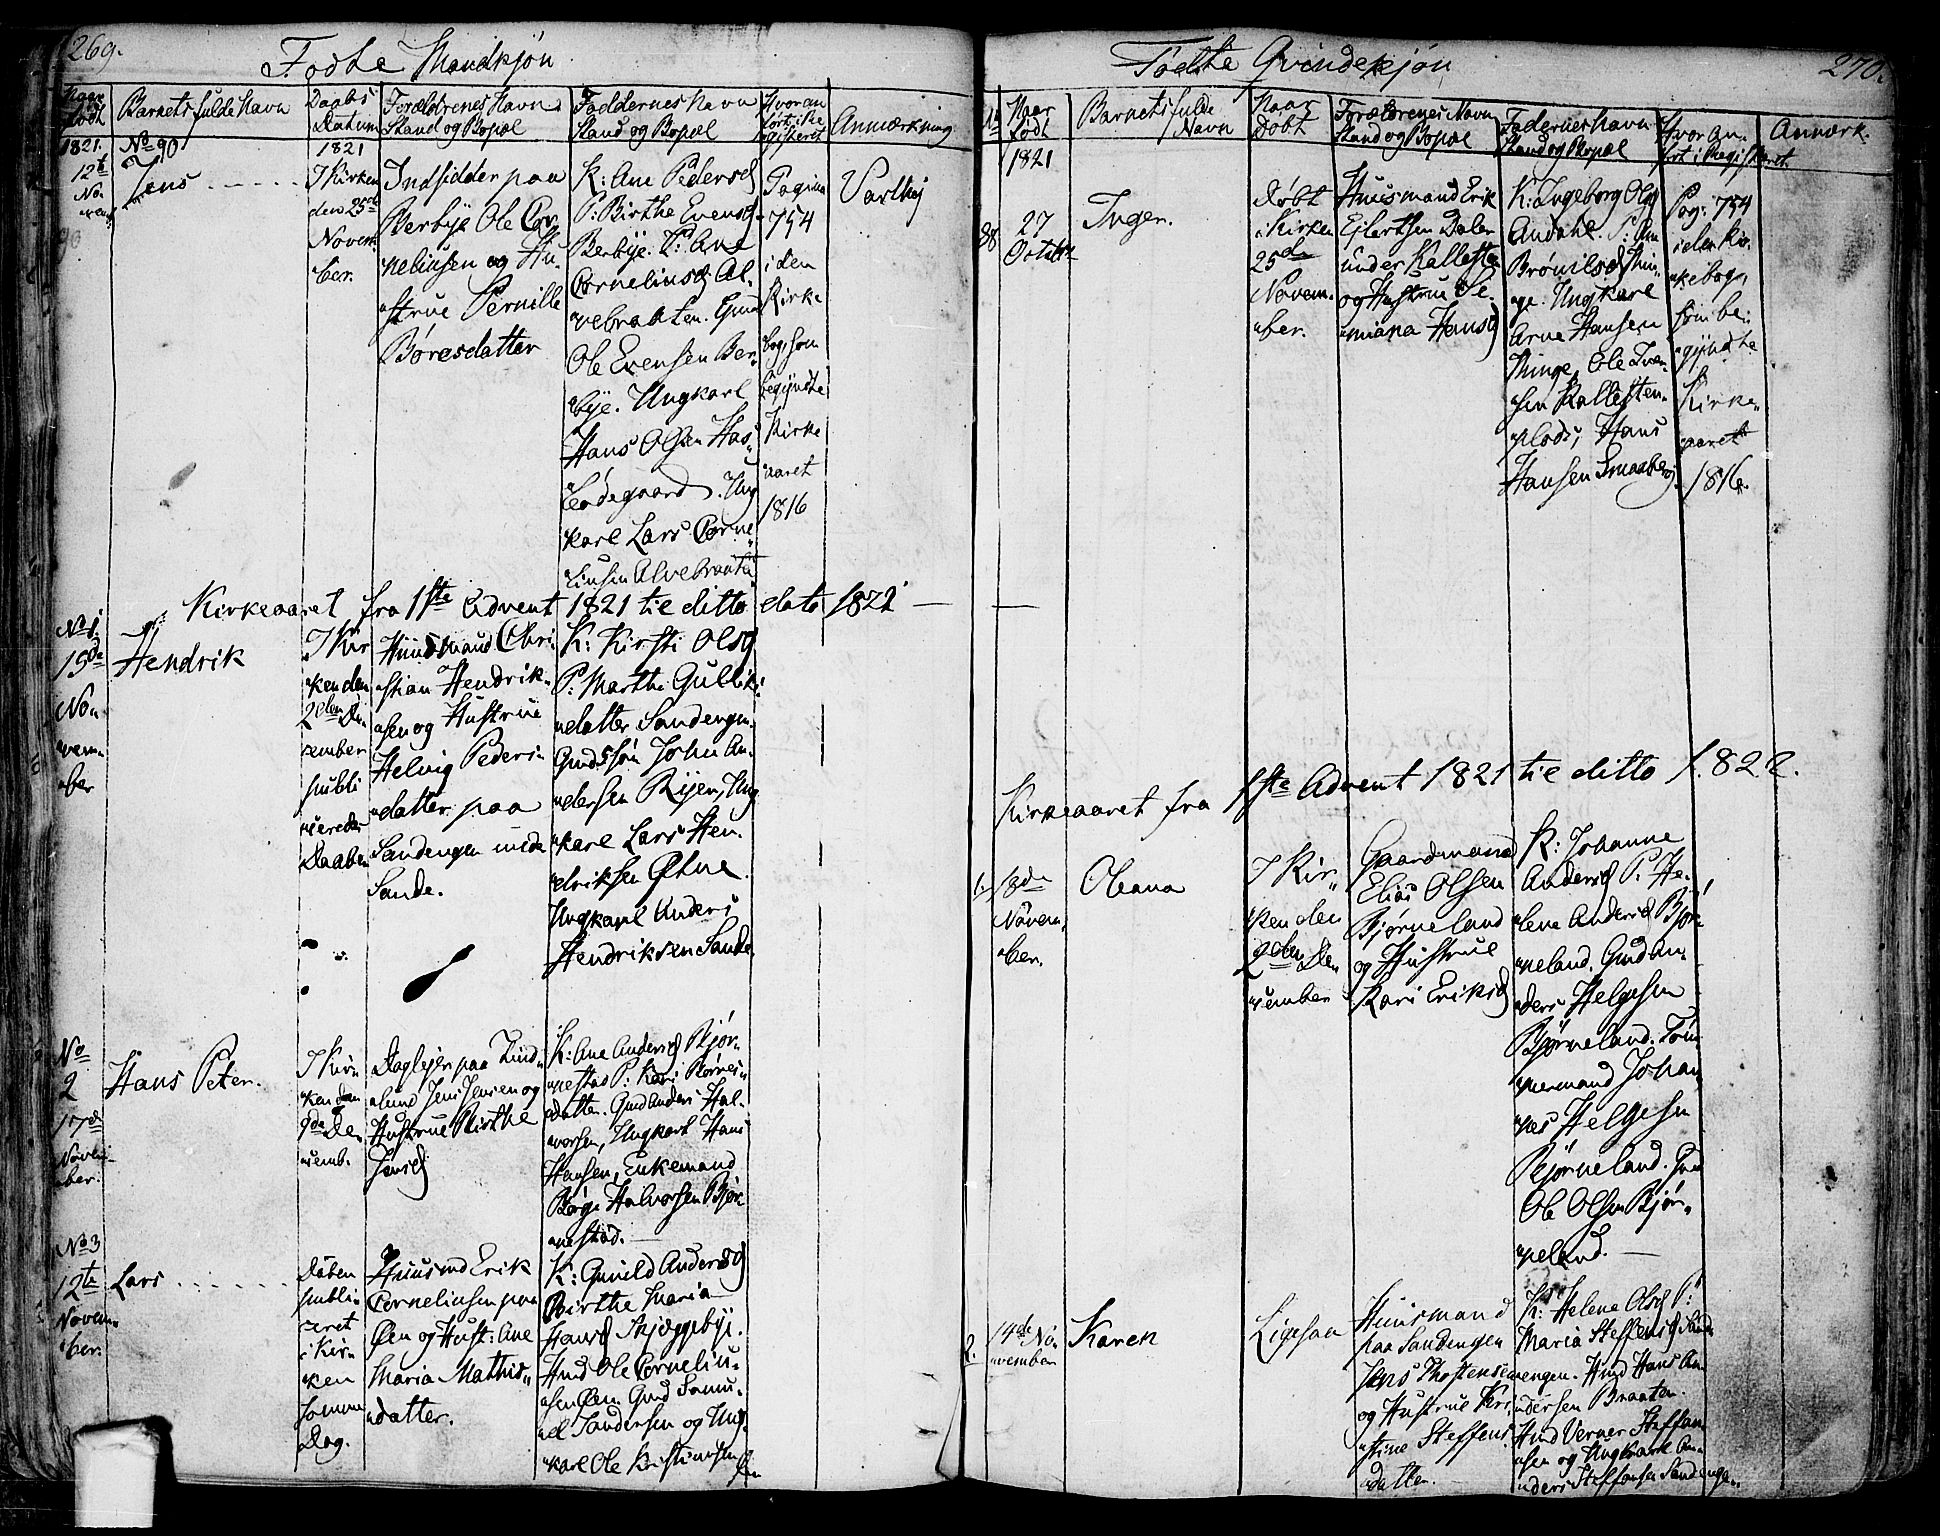 269.
Fodte Mandkjøn
Naar født
Barnets fulde Navn
Daabs Datum
Forældrenes Navn Stand og Bopæl
Faddernes Navn Stand og Bopæl
Hvor anført i Registeret
Anmærkning
1821.
No 90
1821
12te No
Jens
I Kirken
den 25de
Novem
ber.
Indsidder paa
Berbye Ole Cor
neliusen og Hu
strue Pernille
Børesdatter
K: Ane Pedersd
P: Birthe Evensd
Berbye. P: Ane
Corneliusd Al
vebraaten. Gmd
Ole Evensen Ber
bye. Ungkarl
Hans Olsen Has
lødegaard. Ung
karl Lars Corne
liusen Alvebraate
Pagina
754
i den
Kirke
bog, som
begyndte
Kirke
aaret
1816
Kirkeaaret fra 1ste Advent 1821 til ditto dato 1822
No 1.
15de
No
vem
ber
Hendrik
I Kir
ken den
2den De
cember
publi
ceredes
Daaben
Huusmand Chri
stian Hendrik
sen og Hustrue
Helvig Peders
datter paa
Sandengen under
Sande.
K: Kirsti Olsd
P: Marthe Gulliks
datter Sandengen
Gmdssøn John An
dersen Rijen, Ung
karl Lars Hen
driksen Østne
Ungkarl Anders
Hendriksen Sande
No
2
17de
Novem
ber.
Hans Peter.
I Kir
ken den
9de De
cemb.
Daglejer paa
lund Jens Jensen og
Hustrue Birthe
Jensd
K: Ane Andersd Bjør
nestad P: Kari Børres
datter. Gmd Anders Hal
vorsen, Ungkarl Hans
Hansen, Enkemand
Børge Halvorsen Bjør
nestad.
No 3
12te
Novem
ber.
Lars
Daaben
publi
ceret
i Kir
ken
samme
Dag.
Huusmd Erik
Corneliusen paa
Øen og Hust: Ane
Maria Mathis
datter.
K: Gunild Andersd
Birthe Maria
Hansd Skjæggebye.
Hmd Ole Corneliu
sen Øen. Gmd Samu
el Sandersen og Ung
karl Ole Kristiansen
Øen
270.
Fødte Qvindekjøn
No
Naar født
Barnets fulde Navn
Naar Døbt
Forældrenes Navn Stand og Bopæl
Fadernes Navn Stand og Bopæl
Hvor anført i Registeret
Anmærk.
1821
88
27
October
Inger.
Døbt
i Kirken
25de
Novem
ber.
Huusmand Erik
Ejlertsen Dalen
under Kallesten
og Hustrue Se
miana Hansd
K: Ingeborg Olsd
Andahl. P: Ane
Brønilsd Thin
ge. Ungkarl
Arne Hansen
Thinge, Ole Iver
sen Kallesten
plads, Hans
Hansen Smaaberg.
Pag: 754
i den Kir
kebog,
som be
gyndte
Kirke
aaret
1816.
Kirkeaaret fra 1ste Advent 1821 til ditto 1822.
1.
18de
Novem
ber.
Oleana
I Kir
ken den
2den De
cember
Gaardmand
Elias Olsen
Bjørneland
og Hustrue
Kari Eriksd
K: Johanne
Andersd P: He
lene Andersd Bjør
neland. Gmd An
ders Helgesen
Bjørneland. Tøm
mermand Johan
nes Helgesen
Bjørneland. Gmd
Ole Olsen Bjør
neland.
2.
14de No
vember
Karen
Ligesaa
Huusmand
paa Sandengen
Jens Thostensen
og Hustrue Kir
stine Steffens
datter.
K: Helene Olsd P:
Maria Steffensd Sand
engen. Hmd Hans An
dersen Braaten.
Hmd Verner Steffan
sen og Ungkarl An
ders Steffansen Sandengen.